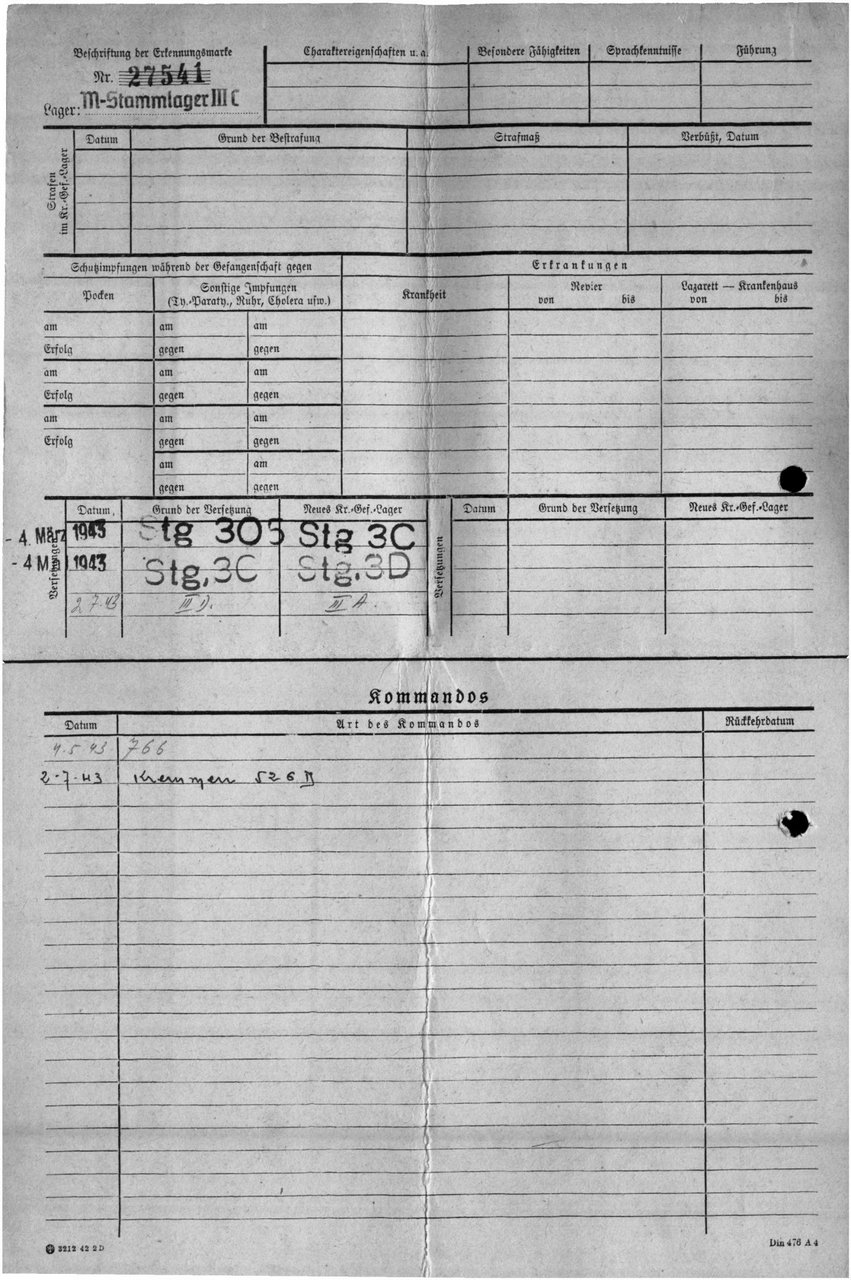 Beschriftung der Erkennungsmarke
Nr. 27541
Lager: M-Stammlager III C
Charaktereigenschaften u. a.
Besondere Fähigkeiten
Sprachkenntnisse
Führung
Strafen im Kr.-Gef.-Lager
Datum
Grund der Bestrafung
Strafmaß
Verbüßt, Datum
Schutzimpfungen während der Gefangenschaft gegen
Erkrankungen
Pocken
Sonstige Impfungen
(Ty.-Paraty., Ruhr, Cholera usw.)
Krankheit
Revier
von bis
Lazarett — Krankenhaus
von bis
am am am
Erfolg gegen gegen
am am am
Erfolg gegen gegen
am am am
Erfolg gegen gegen
am am
gegen gegen
Versetzungen
Datum
Grund der Versetzung
Neues Kr.-Gef.-Lager
Versetzungen
Datum
Grund der Versetzung
Neues Kr.-Gef.-Lager
- 4. März 1943 Stg 305 Stg 3C
- 4 1943 Stg. 3C Stg. 3D
2.7.43 III D. III A.
Kommandos
Datum Art des Kommandos Rückkehrdatum
4.5.43 766
2.7.43 Kremmen 526 B
3212 42 2 D
Din 476 A 4